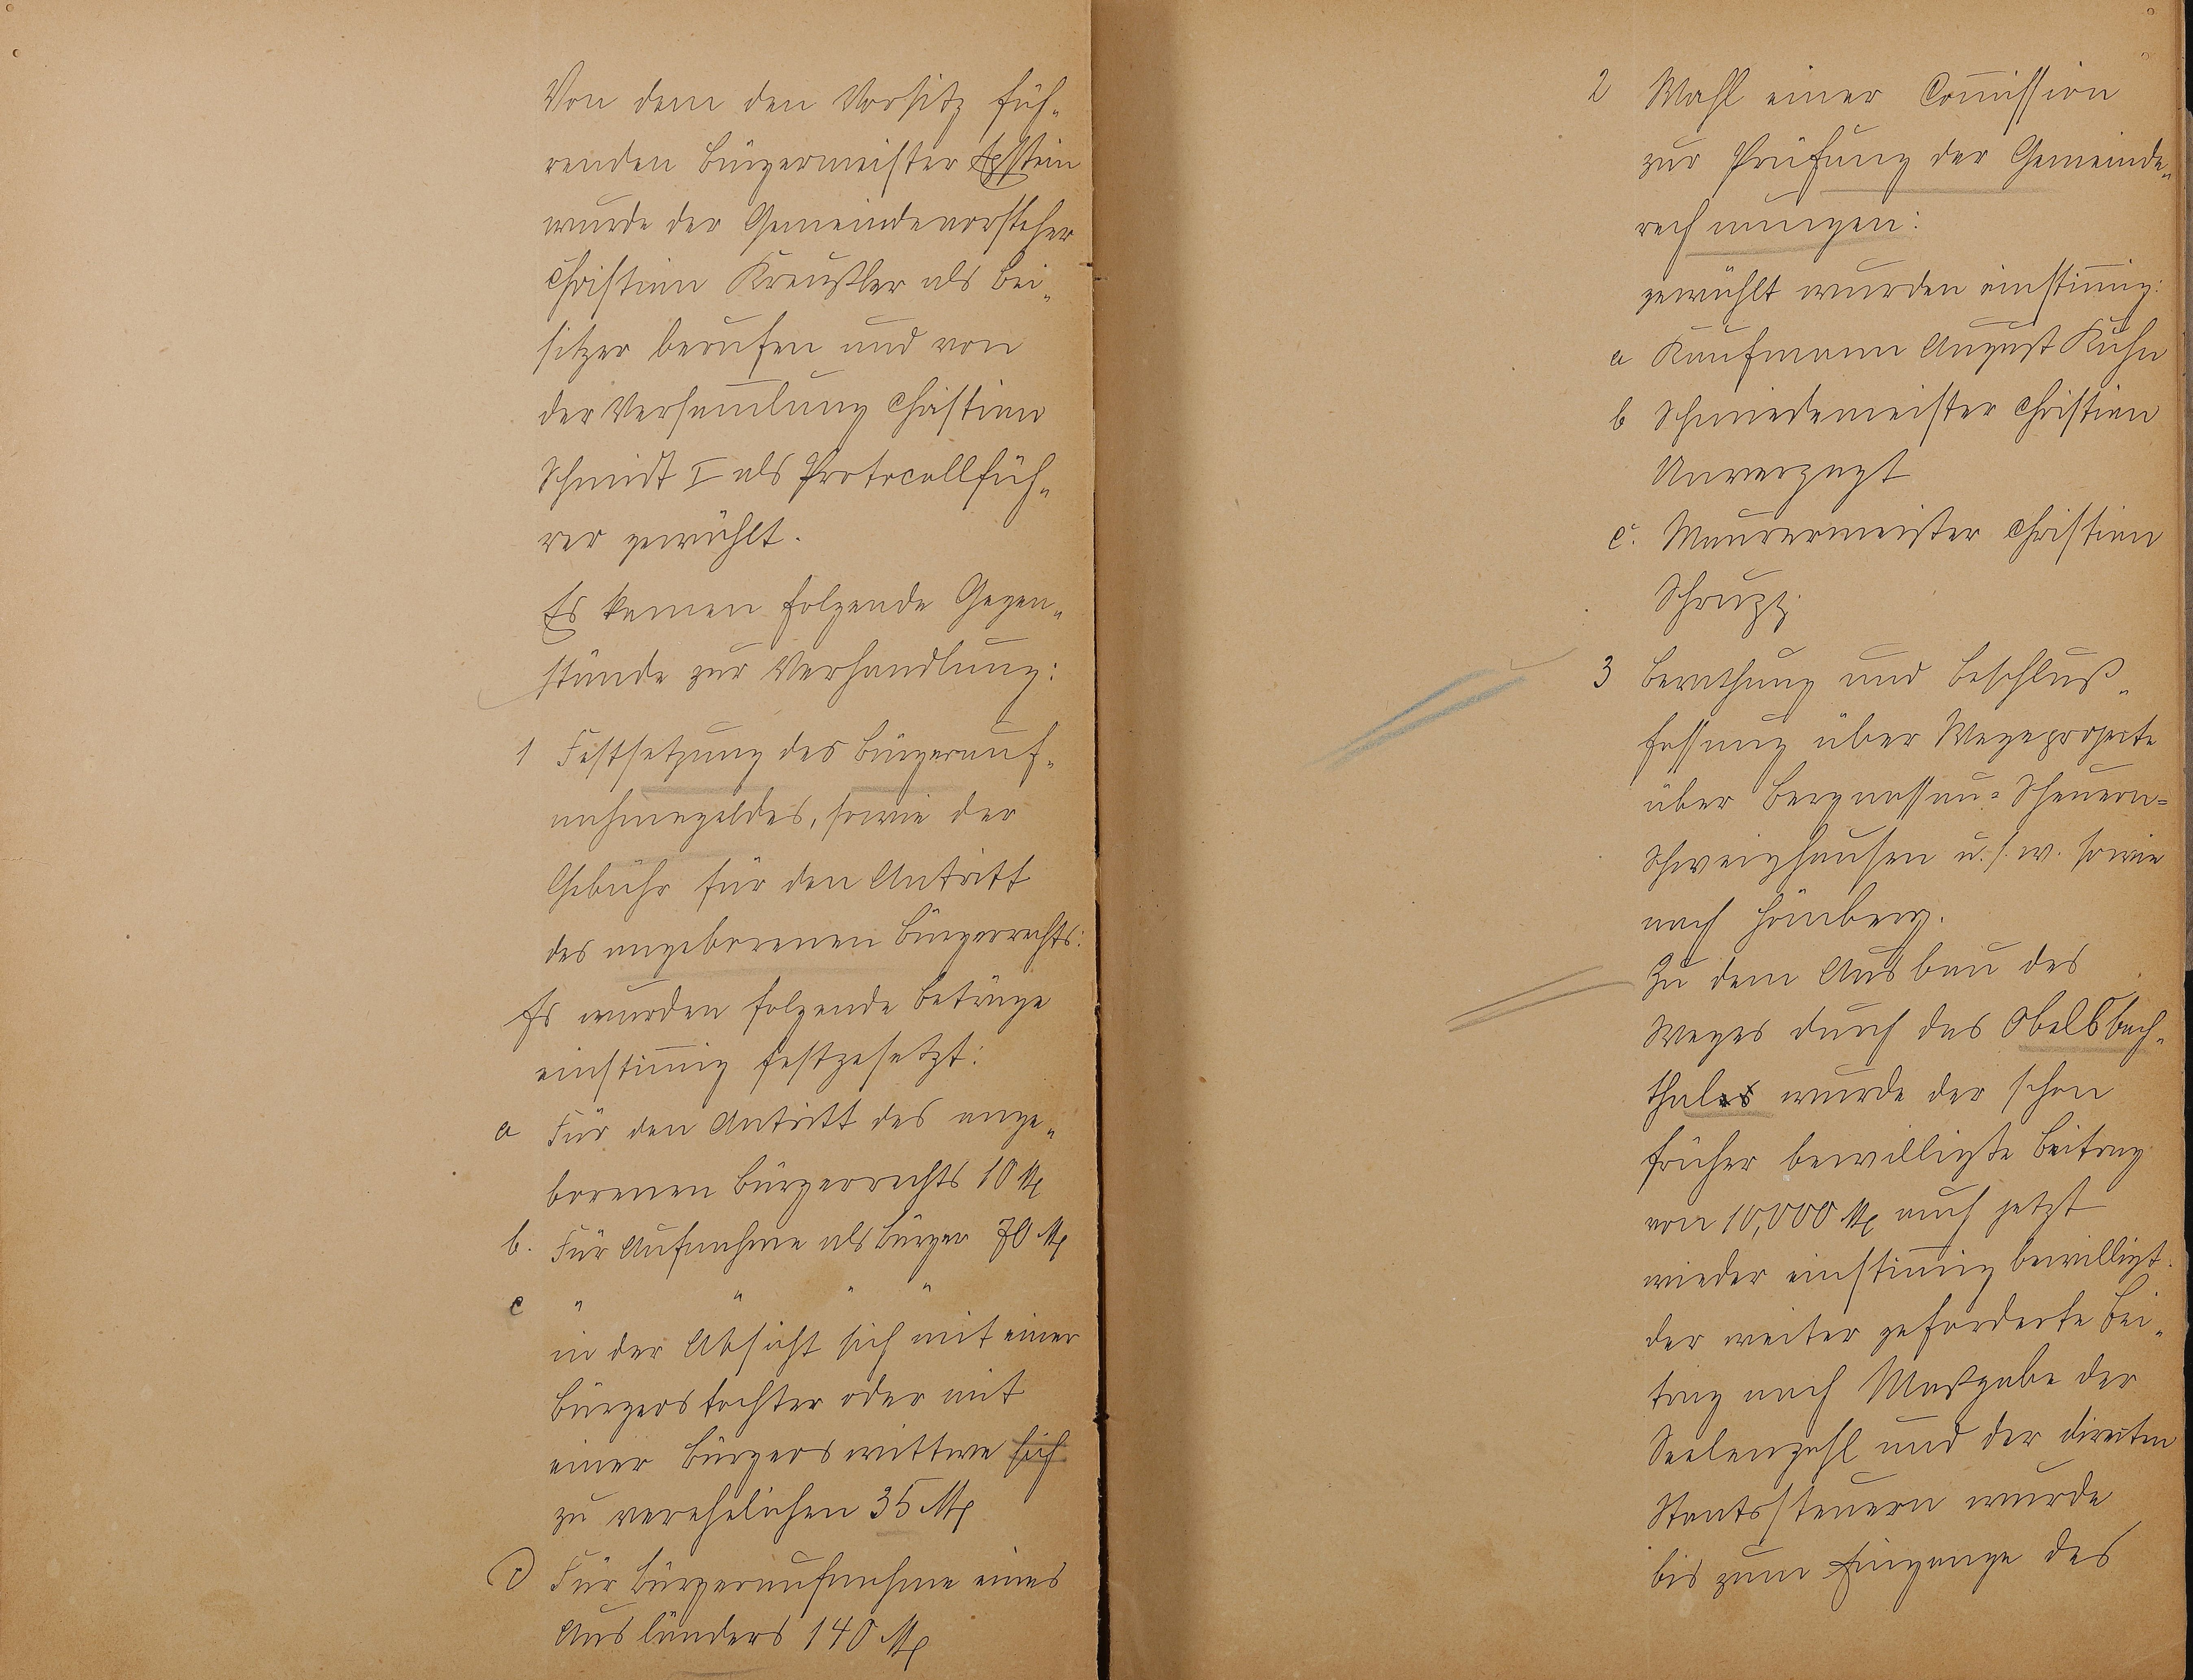 Von dem den Vorsitz füh-
renden Bürgermeister
wurde der Gemeindevorsteher
Christian Kreußler als Bei-
sitzer berufen und von
der Versam̅lung Christian
Schmidt I als Protocollfüh-
rer gewählt.
Es kamen folgende Gegen-
stände zur Verhandlung:
1 Festsetzung des Bürgerauf-
nahmegeldes, sowie der
Gebühr für den Antritt
des angeborenen Bürgerrechts:
Es wurden folgende Beträge
einstim̅ig festgesetzt:
a Für den Antritt des ange-
borenen Bürgerrechts 10 M
b. Für Aufnahme als Bürger 70 M
c " " " "
in der Absicht sich mit einer
Bürgerstochter oder mit
einer Bürgerswittwe sich
zu verehelichen 35 M
d Für Bürgeraufnahme eines
Ausländers 140 M
2 Wahl einer Com̅ission
zur Prüfung der Gemeinde-
rechnungen:
gewählt wurden einstim̅ig:
a Kaufmann August Kuhn
b Schmiedemeister Christian
Unverzagt
c. Maurermeister Christian
3 Berathung und Beschluß-
fassung über Wegeprojecte
über Bergnassau-Scheuern-
Schweighausen u. s. w. sowie
nach Hömberg.
Zu dem Ausbau des
Weges durch das Obelsbach-
thales wurde der schon
früher bewilligte Beitrag
von 10,000 M auch jetzt
wieder einstim̅ig bewilligt.
der weiter geforderte Bei-
trag nach Maßgabe der
Seelenzahl und der direkten
Staatssteuern wurde
bis zum Eingange des